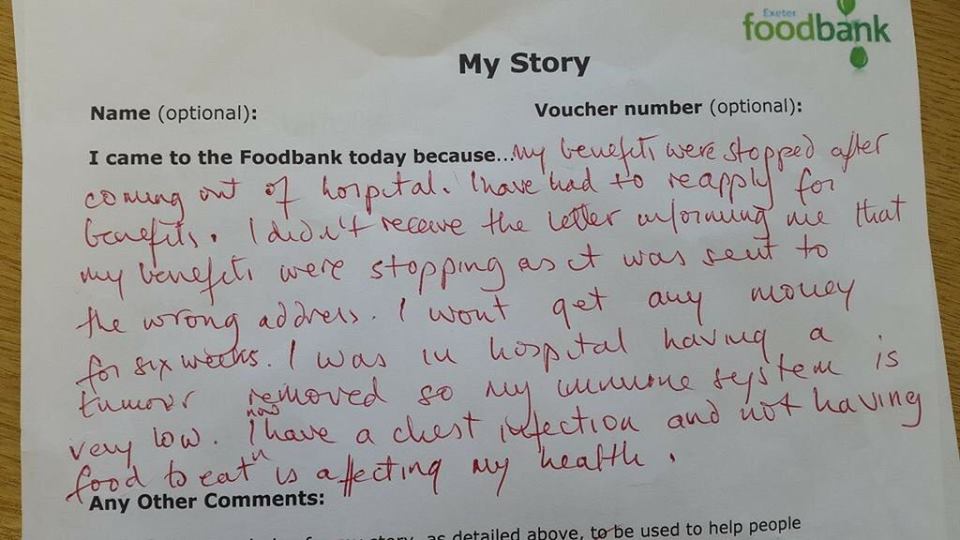 Exeter
foodbank
My Story
Name (optional):
Voucher number (optional):
I came to the Foodbank today because... My benefits were stopped after
coming out of hospital. I have had to reapply for
benefits. I didn't receive the letter informing me that
my benefits were stopping as it was sent to
the wrong address. I wont get any money
for six weeks. I was in hospital having a
tumour removed so my immune system is
very low. I now have a chest infection and not having
food to eat is affecting my health.
Any Other Comments:
my story, as detailed above, to be used to help people